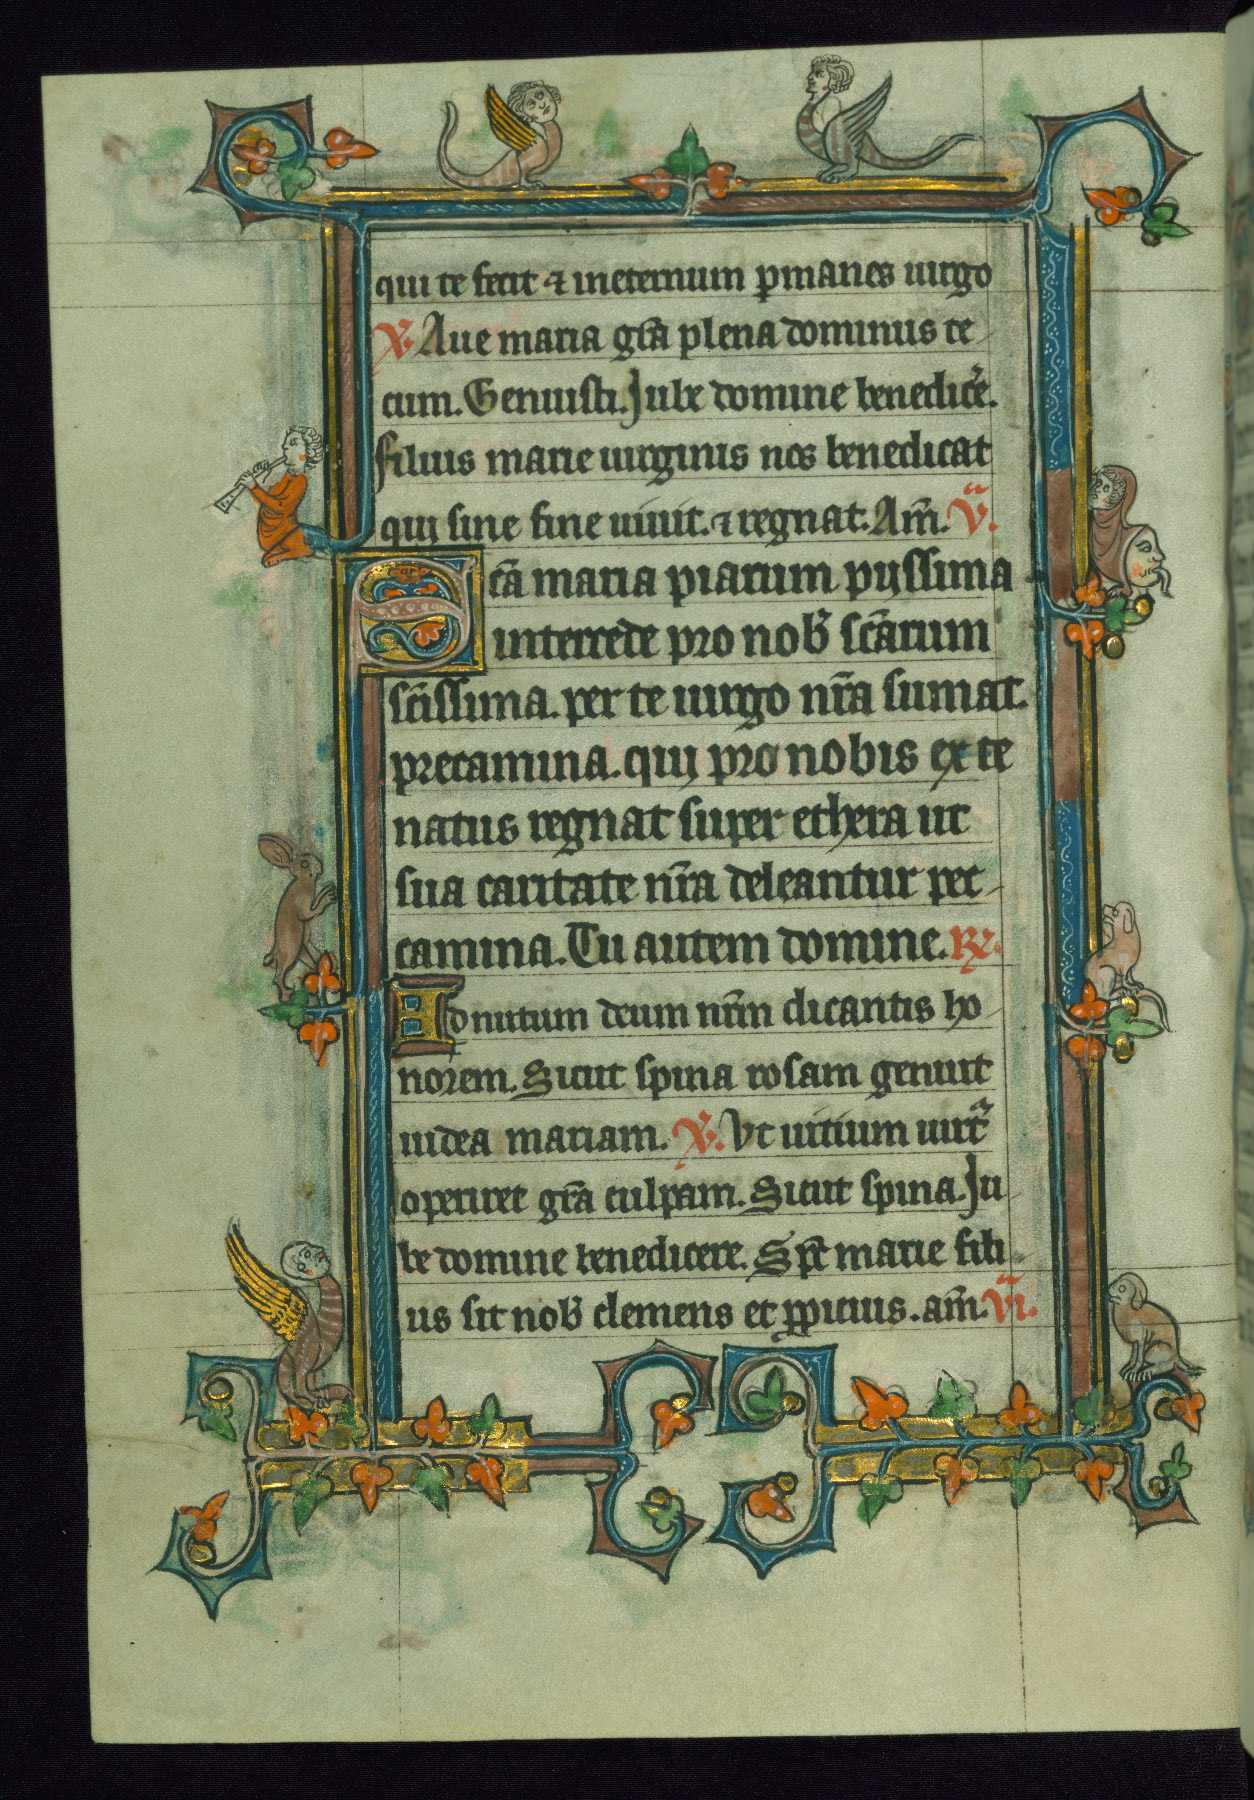 qui te fecit ⁊ ineternum ꝑmanes uirgo
V. Aue maria gr̃a plena dominus te
cum. Genuisti. Jube domine benedicẽ.
filius marie uirginis nos benedicat
qui sine fine uiuit. ⁊ regnat. Am̃. V̈.
Scã maria piarum pijssima
intercede pro nob̃ scãrum
scĩssima. per te uirgo nr̃a sumat.
precamina. qui pro nobis ex te
natus regnat super ethera ut
sua caritate nr̃a deleantur pec
camina. Tu autem domine. R.
Ad nutum deum nr̃m dicantis ho
norem. Sicut spina rosam genuit
iudea mariam. V. Ut uitium uirt̃
operiret gr̃a culpam. Sicut spina. Ju
be domine benedicere. Spẽ marie fili
us sit nob̃ clemens et ꝓpicius. am̃. Vi.